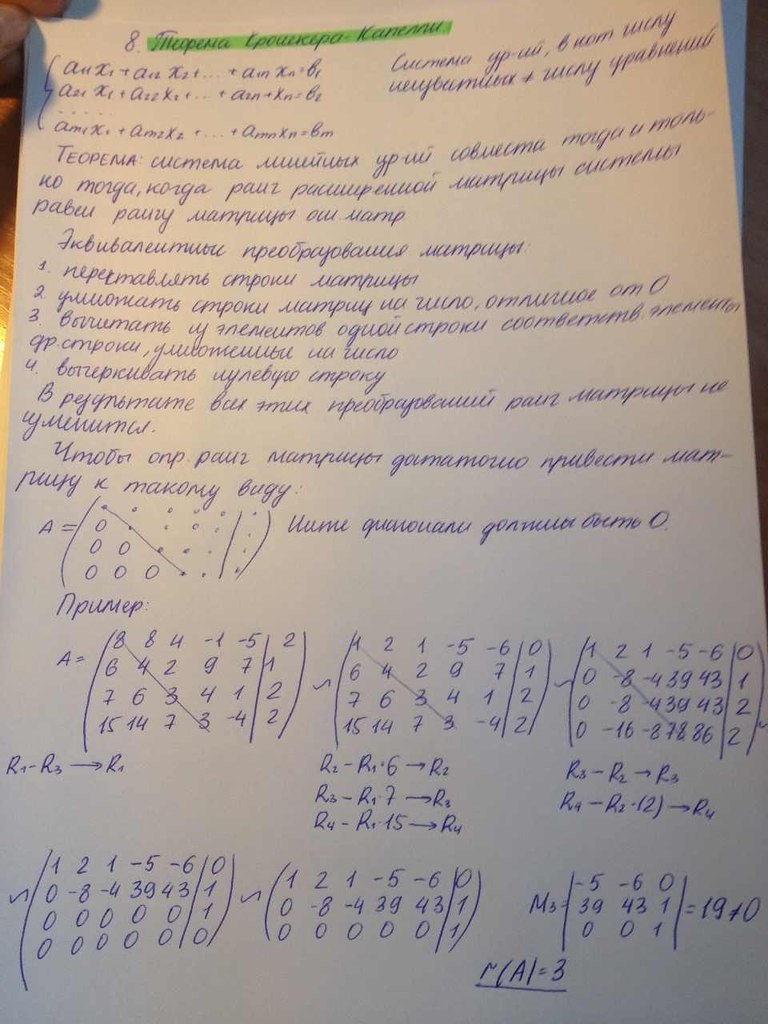 8. Теорема Кронекера-Капелли.
a11 x1 + a12 x2 + ... + a1n xn = b1
a21 x1 + a22 x2 + ... + a2n + xn = b2
......
am1 x1 + am2 x2 + ... + amn xn = bm
Система ур-ий, в кот числу
неизвестных ≠ числу уравнений
Теорема: система линейных ур-ий совместа тогда и толь-
ко тогда, когда ранг расширенной матрицы системы
равен рангу матрицы осн матр
Эквивалентные преобразования матрицы:
1. переставлять строки матрицы
2. умножать строки матриц на число, отличное от 0
3. вычитать из элементов одной строки соответств. элементы
др. строки, умноженные на число
4. вычеркивать нулевую строку
В результате всех этих преобразований ранг матрицы не
изменится.
Чтобы опр. ранг матрицы достаточно привести мат-
рицу к такому виду:
A =
0
0 0
0 0 0
Ниже диагонали должны быть 0.
Пример:
A =
8 8 4 -1 -5 | 2
6 4 2 9 7 | 1
7 6 3 4 1 | 2
15 14 7 3 -4 | 2
~
1 2 1 -5 -6 | 0
6 4 2 9 7 | 1
7 6 3 4 1 | 2
15 14 7 3 -4 | 2
~
1 2 1 -5 -6 | 0
0 -8 -4 39 43 | 1
0 -8 -4 39 43 | 2
0 -16 -8 78 86 | 2
~
R1 - R3 → R1
R2 - R1·6 → R2
R3 - R1·7 → R3
R4 - R1·15 → R4
R3 - R2 → R3
R4 - R2·(2) → R4
~
1 2 1 -5 -6 | 0
0 -8 -4 39 43 | 1
0 0 0 0 0 | 1
0 0 0 0 0 | 0
~
1 2 1 -5 -6 | 0
0 -8 -4 39 43 | 1
0 0 0 0 0 | 1
M3 =
-5 -6 0
39 43 1
0 0 1
= 19 ≠ 0
r(A) = 3